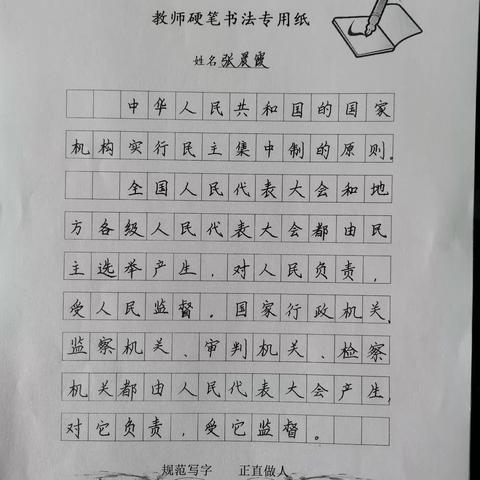 教师硬笔书法专用纸
姓名张晨霞
中华人民共和国的国家
机构实行民主集中制的原则。
全国人民代表大会和地
方各级人民代表大会都由民
主选举产生，对人民负责，
受人民监督。国家行政机关、
监察机关、审判机关、检察
机关都由人民代表大会产生，
对它负责，受它监督。
规范写字 正直做人